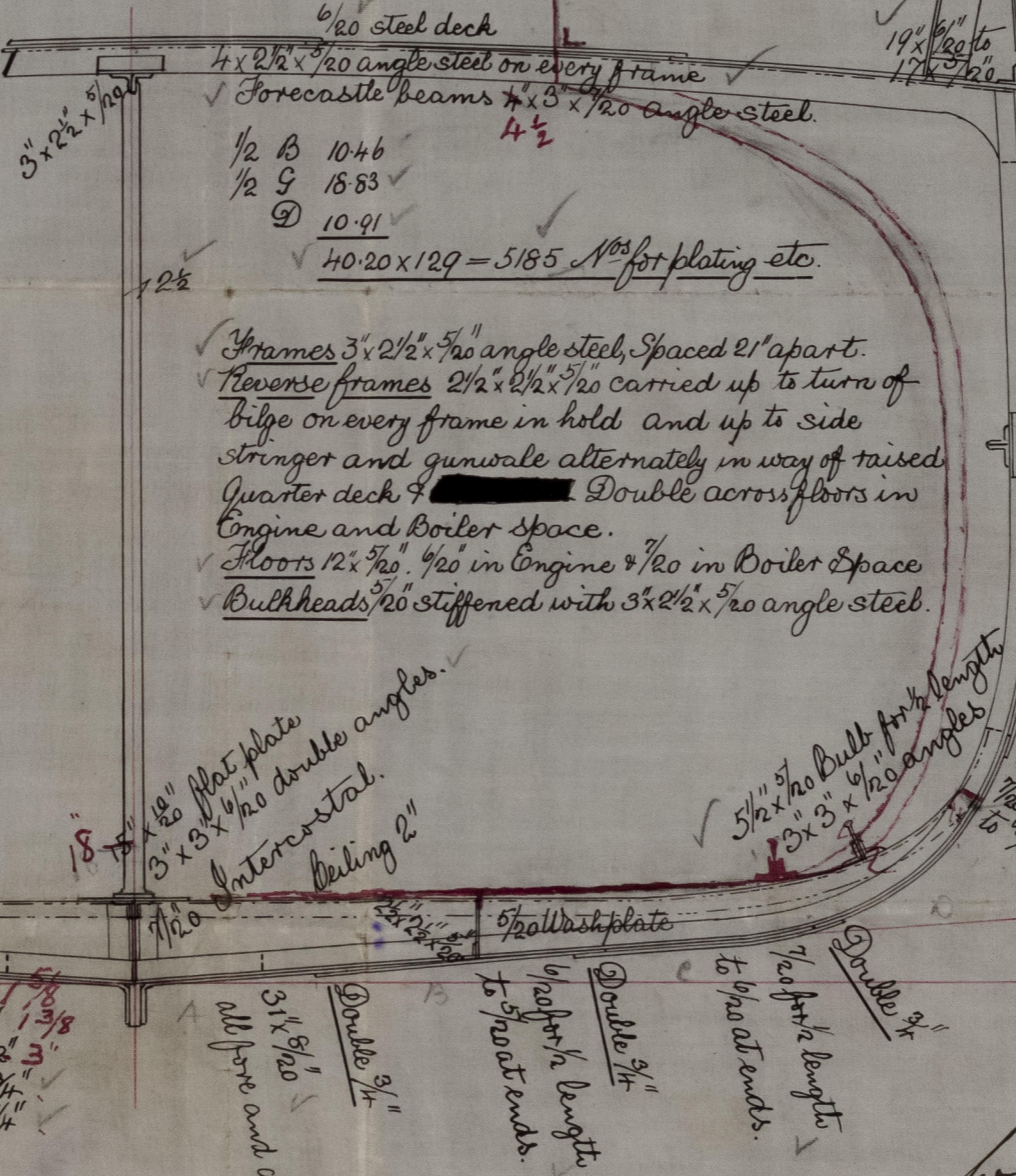 6/20 steel deck
19" x 6/20" to
17" x 5/20"
4 x 2 1/2" x 5/20 angle steel on every frame
Forecastle beams 4" x 3" x 7/20 angle steel.
4 1/2
3" x 2 1/2" x 5/20
1/2 B 10.46
1/2 G 18.83
D 10.91
40.20 x 129 = 5185 Nos for plating etc.
2 1/2
Frames 3" x 2 1/2" x 5/20" angle steel, Spaced 21" apart.
Reverse frames 2 1/2" x 2 1/2" x 5/20" carried up to turn of
bilge on every frame in hold and up to side
stringer and gunwale alternately in way of raised
Quarter deck & Double across floors in
Engine and Boiler space.
Floors 12" x 5/20". 6/20" in Engine & 7/20 in Boiler Space
Bulkheads 5/20" stiffened with 3" x 2 1/2" x 5/20 angle steel.
18"
15" x 10/20" flat plate
3" x 3" x 6/20" double angles.
Intercostal.
Ceiling 2"
7/20"
5 1/2" x 5/20 Bulb for 1/2 length
3" x 3" x 6/20" angles
to
2 1/2" x 2 1/2" x 5/20"
5/20 Washplate
A
B
C
D
5/8
1 3/8
3"
31" x 8/20"
all fore and a
Double 3/4"
6/20 for 1/2 length
to 5/20 at ends.
Double 3/4"
7/20 for 1/2 length
to 6/20 at ends.
Double 3/4"